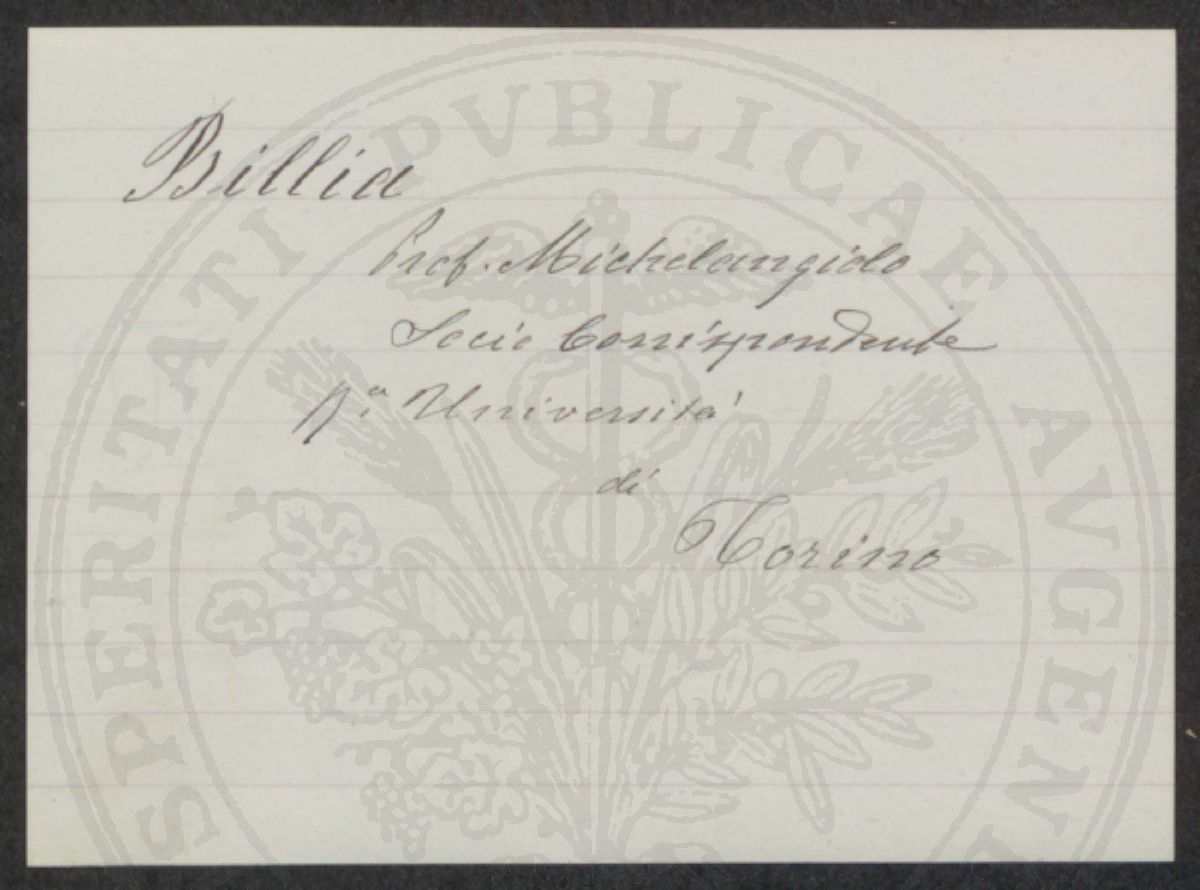 Billia
Prof. Michelangiolo
Socio Corrispondente
Rª. Università
di
Torino
PROSPERITATI PVBLICAE AVGEN